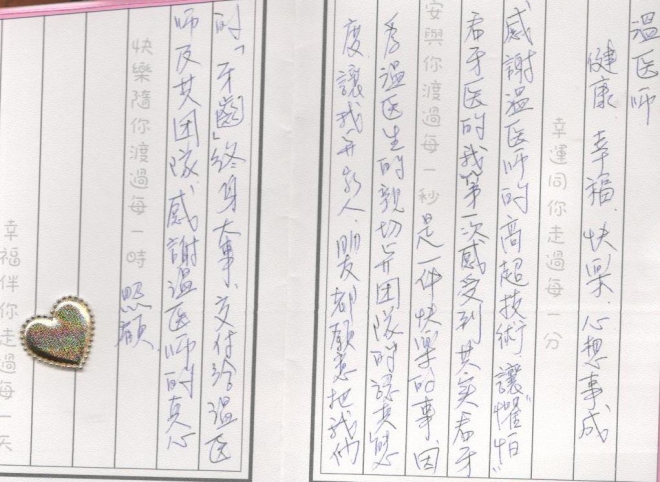 溫医師
健康 幸福.快樂.心想事成
幸運同你走過每一分
感謝溫医師的高超技術,讓"懼怕"
看牙医的我第一次感受到其实看牙
安與你渡過每一秒 是一件快樂的事.因
為溫医生的親切与团隊的認真態
度讓我与家人.朋友都願意把我們
的「牙齒」終身大事,交付給溫医
師及其团隊 感謝溫医師的真心
快樂隨你渡過每一時 照顧
幸福伴你走過每一天